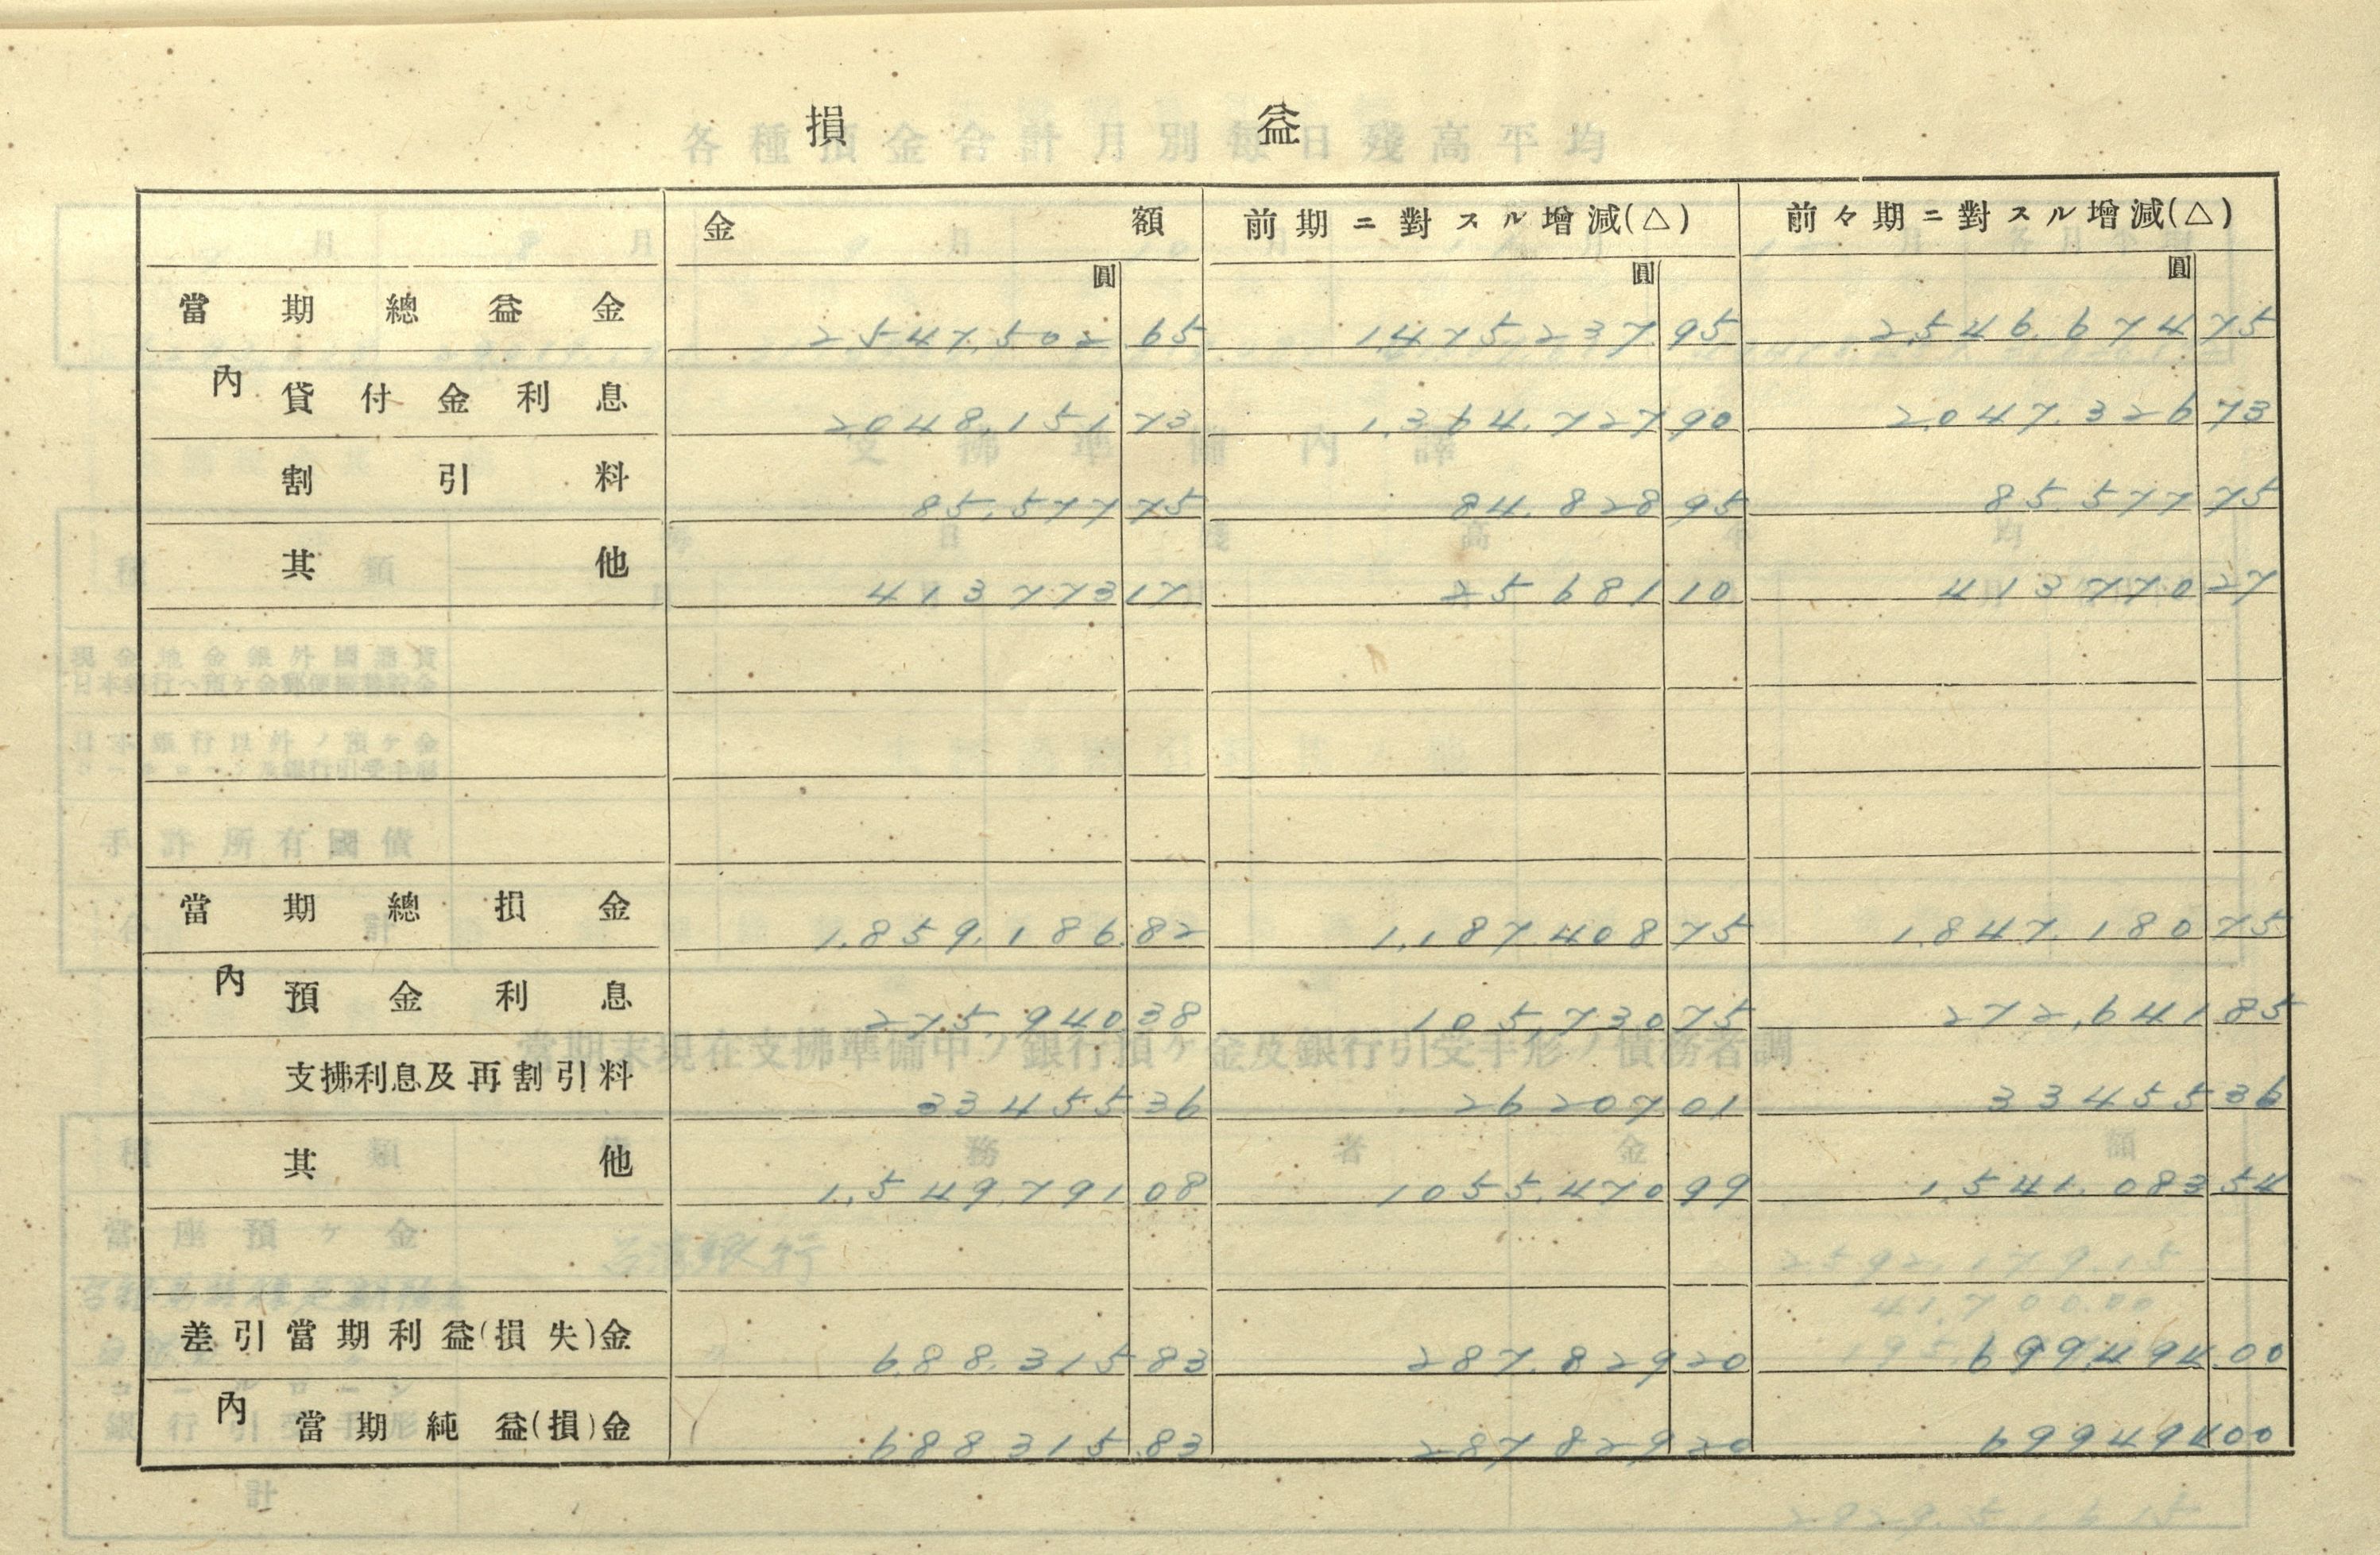 損益
金額 前期ニ對スル增減(△) 前々期ニ對スル增減(△)
圓 圓 圓
當期總益金 2,547,502 65 1,475,237 95 2,546,674 75
內 貸付金利息 2,048,151 73 1,364,727 90 2,047,326 73
割引料 85,577 75 84,828 95 85,577 75
其他 413,773 17 25681 10 413770 27
當期總損金 1,859,186 82 1,187,408 75 1,847,180 75
內 預金利息 275,940 38 105,730 75 272,641 85
支拂利息及再割引料 33455 36 26207 01 33455 36
其他 1,549,791 08 1055,470 99 1,541,083 54
差引當期利益(損失)金 688,315 83 287,829 20 699,494 00
內 當期純益(損)金 688315 83 287829 20 699494 00